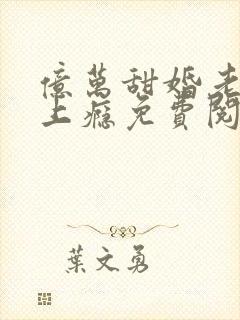 億萬甜婚老
上癮免費閱
葉文勇